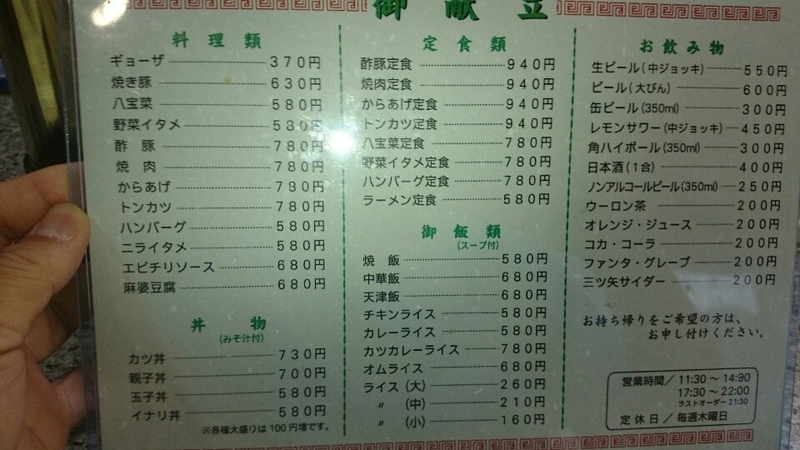 御献立
料理類
ギョーザ 370円
焼き豚 630円
八宝菜 580円
野菜イタメ 580円
酢豚 780円
焼肉 780円
からあげ 780円
トンカツ 780円
ハンバーグ 580円
ニライタメ 580円
エビチリソース 680円
麻婆豆腐 680円
丼物
(みそ汁付)
カツ丼 730円
親子丼 700円
玉子丼 580円
イナリ丼 580円
※各種大盛りは100円増です。
定食類
酢豚定食 940円
焼肉定食 940円
からあげ定食 940円
トンカツ定食 940円
八宝菜定食 780円
野菜イタメ定食 780円
ハンバーグ定食 780円
ラーメン定食 580円
御飯類
(スープ付)
焼飯 580円
中華飯 680円
天津飯 680円
チキンライス 580円
カレーライス 580円
カツカレーライス 780円
オムライス 680円
ライス(大) 260円
〃 (中) 210円
〃 (小) 160円
お飲み物
生ビール(中ジョッキ) 550円
ビール(大びん) 600円
缶ビール(350ml) 300円
レモンサワー(中ジョッキ) 450円
角ハイボール(350ml) 300円
日本酒(1合) 400円
ノンアルコールビール(350ml) 250円
ウーロン茶 200円
オレンジ・ジュース 200円
コカ・コーラ 200円
ファンタ・グレープ 200円
三ツ矢サイダー 200円
お持ち帰りをご希望の方は、
お申し付けください。
営業時間/11:30～14:30
17:30～22:00
ラストオーダー21:30
定休日/毎週木曜日